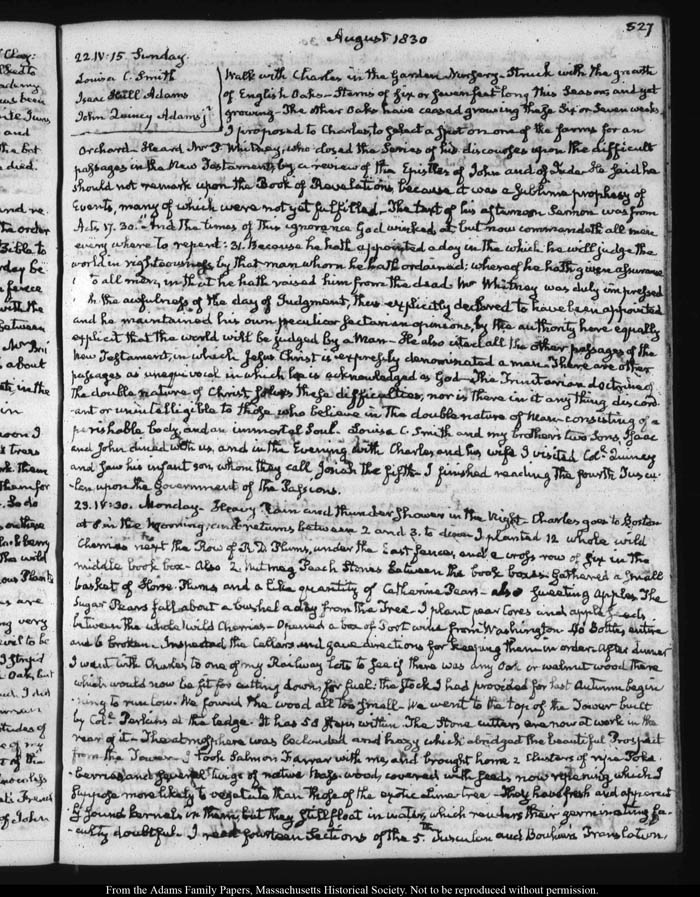 527
August 1830
22. IV:15. Sunday.
Louisa C. Smith
Isaac Hull Adams
John Quincy Adams jr
Walk with Charles in the Garden Nursery – Struck with the growth
of English Oaks – Stems of six or seven feet long this Season, and yet
growing – The other Oaks have ceased growing these Six or Seven weeks
I proposed to Charles, to select a Spot on one of the farms for an
Orchard – Heard Mr F. Whitney, who closed the Series of his discourses upon the difficult
passages in the New Testament, by a review of the Epistles of John and of Jude. He said he
should not remark upon the Book of Revelations, because it was a Sublime prophesy of
Events, many of which were not yet fulfilled – The text of his afternoon Sermon was from
Acts 17. 30. "And the times of this ignorance God winked at but now commandeth all men
every where to repent: 31. Because he hath appointed a day in the which he will judge the
world in righteousness by that man whom he hath ordained; whereof he hath given assurance
to all men, in that he hath raised him from the dead. Mr Whitney was duly impressed
the awfulness of the day of Judgment, thus explicitly declared to have been appointed
and he maintained his own peculiar sectarian opinions, by the authority here equally
explicit that the world will be judged by a Man – He also cited all the other passages of the
New Testament, in which Jesus Christ is expressly denominated a man. There are other
passages as unequivocal in which he is acknowledged as God – The Trinitarian doctrine of
the double nature of Christ solves these difficulties, nor is there in it any thing discord-
-ant or unintelligible to those who believe in the double nature of Man – consisting of a
perishable body, and an immortal Soul. Louisa C. Smith and my brother's two Sons, Isaac
and John dined with us, and in the Evening with Charles and his wife I visited Coll. Quincy
and saw his infant son, whom they call, Josiah the fifth – I finished reading the fourth Tuscu-
-lan upon the Government of the Passions.
23. IV:30. Monday – Heavy Rain and thunder Shower in the Night – Charles goes to Boston
at 8 in the morning, and returns between 2 and 3. to dinner I planted 12 whole wild
Cherries next the Row of R.D. Plums, under the East fence, and a cross row of six in the
middle book box – Also 2 Nutmeg Peach Stones between the book boxes. Gathered a Small
basket of Horse Plums, and a like quantity of Catherine Pears – also Sweeting Apples. The
Sugar Pears fall about a bushel a day from the Tree – I plant pear Cores and apple Seeds
between the whole Wild Cherries – Opened a box of Port wine from Washington – 40 Bottles entire
and 6 broken. Inspected the Cellars and gave directions for keeping them in order. After dinner
I went with Charles to one of my Railway lots to see if there was any Oak or walnut wood there
which would now be fit for cutting down, for fuel: the stock I had provided for last Autumn begin-
-ning to run low. We found the wood all too small – We went to the top of the Tower built
by Coll. Perkins at the ledge. It has 58 Steps within. The Stone cutters are now at work in the
rear of it – The atmosphere was beclouded and hazy which abridged the beautiful Prospect
from the Tower – I took Salmon Farrar with me, and brought home 2 clusters of ripe Poke
-berries and several twigs of native Bass-wood, covered with seeds now ripening, which I
suppose more likely to vegetate than those of the exotic Lime tree – They have fresh and apparent-
-ly Sound kernels in them, but they still float in water, which renders their germinating fa-
-culty doubtful. I read fourteen Sections of the 5th Tusculan and Bouhier's Translation.
From the Adams Family Papers, Massachusetts Historical Society. Not to be reproduced without permission.